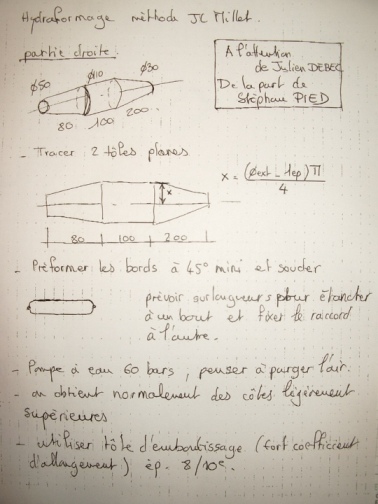 Hydraformage méthode JC Millet.
partie droite.
A l'attention
de Julien DEBEC
De la part de
Stéphane PIED
Ø50
Ø110
Ø30
80 100 200
- Tracer 2 tôles planes
x = (Øext - 1ep) π
4
x
80 100 200
- Préformer les bords à 45° mini et souder
prévoir surlongueurs pour étancher
à un bout et fixer le raccord
à l'autre.
- Pompe à eau 60 bars, penser à purger l'air.
- on obtient normalement des côtes légèrement
supérieures
- utiliser tôle d'emboutissage (fort coefficient
d'allongement) ép. 8/10e.